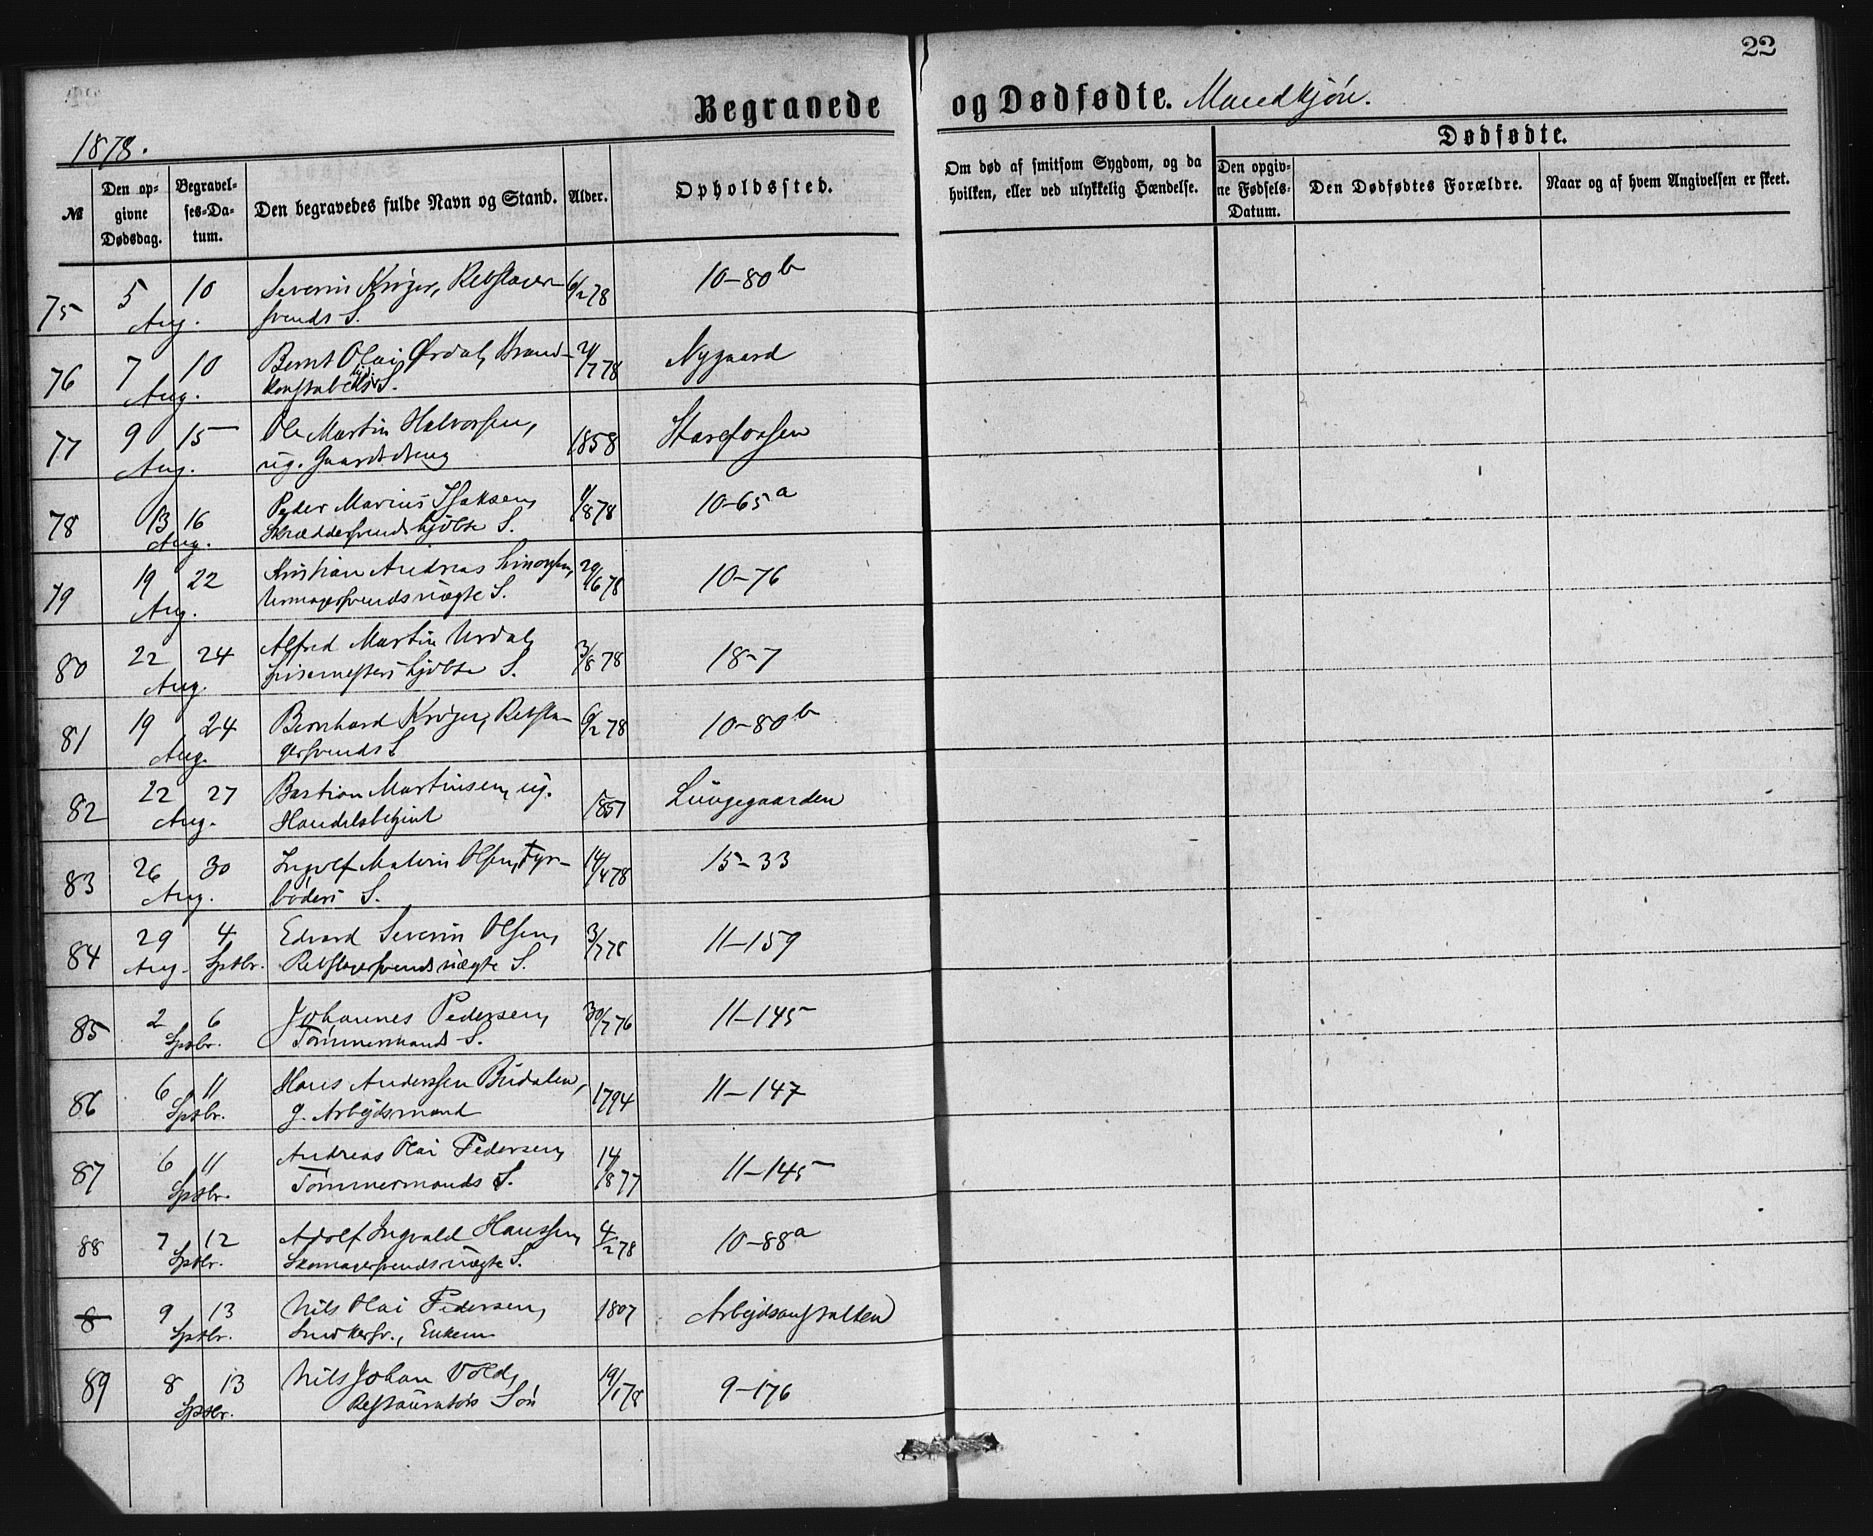 22
Begravede og Dødfødte. Mandkjøn.
1878.
Dødfødte.
№ Den opgivne Dødsdag. Begravelses-Datum. Den begravedes fulde Navn og Stand. Alder. Opholdssted. Om død af smitsom Sygdom, og da hvilken, eller ved ulykkelig Hændelse. Den opgivne Fødsels-Datum. Den Dødfødtes Forældre. Naar og af hvem Angivelsen er skeet.
75 5 10 Severin Krøger, Rebslager- 6/2 78 10-80b
Aug. svends S.
76 7 10 Bernt Olai Ørdal, Brand- 7 78 Nygaard
Aug. konstabels S.
77 9 15 Ole Martin Halvorsen, 1858 Starefossen
Aug. ug. Gaardsdreng
78 13 16 Peder Marius Isaksen, 1/8 78 10-65a
Aug. Skræddersvends hjólte S.
79 19 22 Kristian Andreas Simonsen, 29/6 78 10-76
Aug. Urmagersvends uægte S.
80 22 24 Alfred Martin Urdal, 3/8 78 18-7
Aug. hjólte S.
81 19 24 Bernhard Krøger, Rebsla- 6/2 78 10-80b
Aug. gersvends S
82 22 27 Bastian Martinsen, ug. 1857 Lungegaarden
Aug. Handelsbetjent
83 26 30 Ingolf Malvin Olsen, Fyr- 14/4 78 15-33
Aug. bøders S.
84 29 4 Edvard Severin Olsen, 3/7 78 11-159
Aug. Sptbr. Rebslagersvends uægte S.
85 2 6 Johannes Pedersen, 30/7 76 11-145
Sptbr. Tømmermands S.
86 6 11 Hans Anderssen Budalen, 1794 11-147
Sptbr. g. Arbejdsmand
87 6 11 Andreas Olai Pedersen, 14/8 77 11-145
Sptbr. Tømmermands S.
88 7 12 Adolf Ingvald Hanssen, 4/2 78 10-88a
Sptbr. Skomagersvends uægte S.
8 9 13 Nils Olai Pedersen, 1807 Arbejdsanstalten
Sptbr. Snedkersv., Enkem
89 8 13 Nils Johan Vold, 19/1 78 9-176
Sptbr. Restauratørs Søn